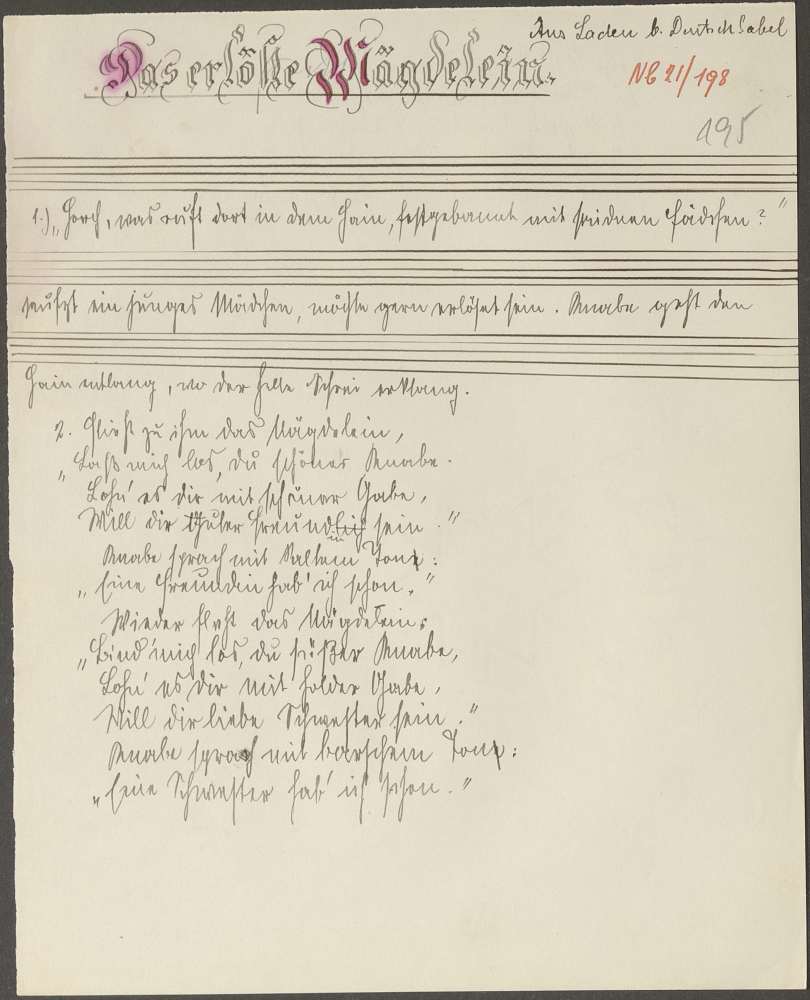 Aus Laden b. Deutsch Gabel
Das erlöste Mägdelein.
NB 21/198
195
1.) „Horch, was ruft dort in dem Hain, festgebannt mit seidnen Fädchen?"
seufzt ein junges Mädchen, möchte gern erlöset sein. Knabe geht den
Hain entlang, wo der helle Schrei erklang.
2. Fleht zu ihm das Mägdelein,
„Laß mich los, du schöner Knabe.
Lohn' es dir mit schöner Gabe,
Will dir Freundin sein."
Knabe sprach mit kaltem Ton:
„Eine Freundin hab' ich schon."
Wieder fleht das Mägdelein:
„Bind' mich los, du süßer Knabe,
Lohn' es dir mit holder Gabe,
Will dir liebe Schwester sein."
Knabe sprach mit barschem Ton:
„Eine Schwester hab' ich schon."